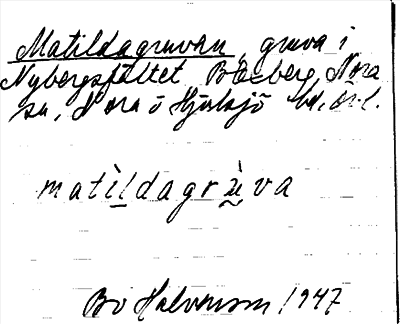 Matildagruvan, gruva i
Nybergsfältet Pärsberg, Nora
sn, Nora o Hjulsjö bd, Ör. l.
matìldagrùva
Bo Halvarson 1947